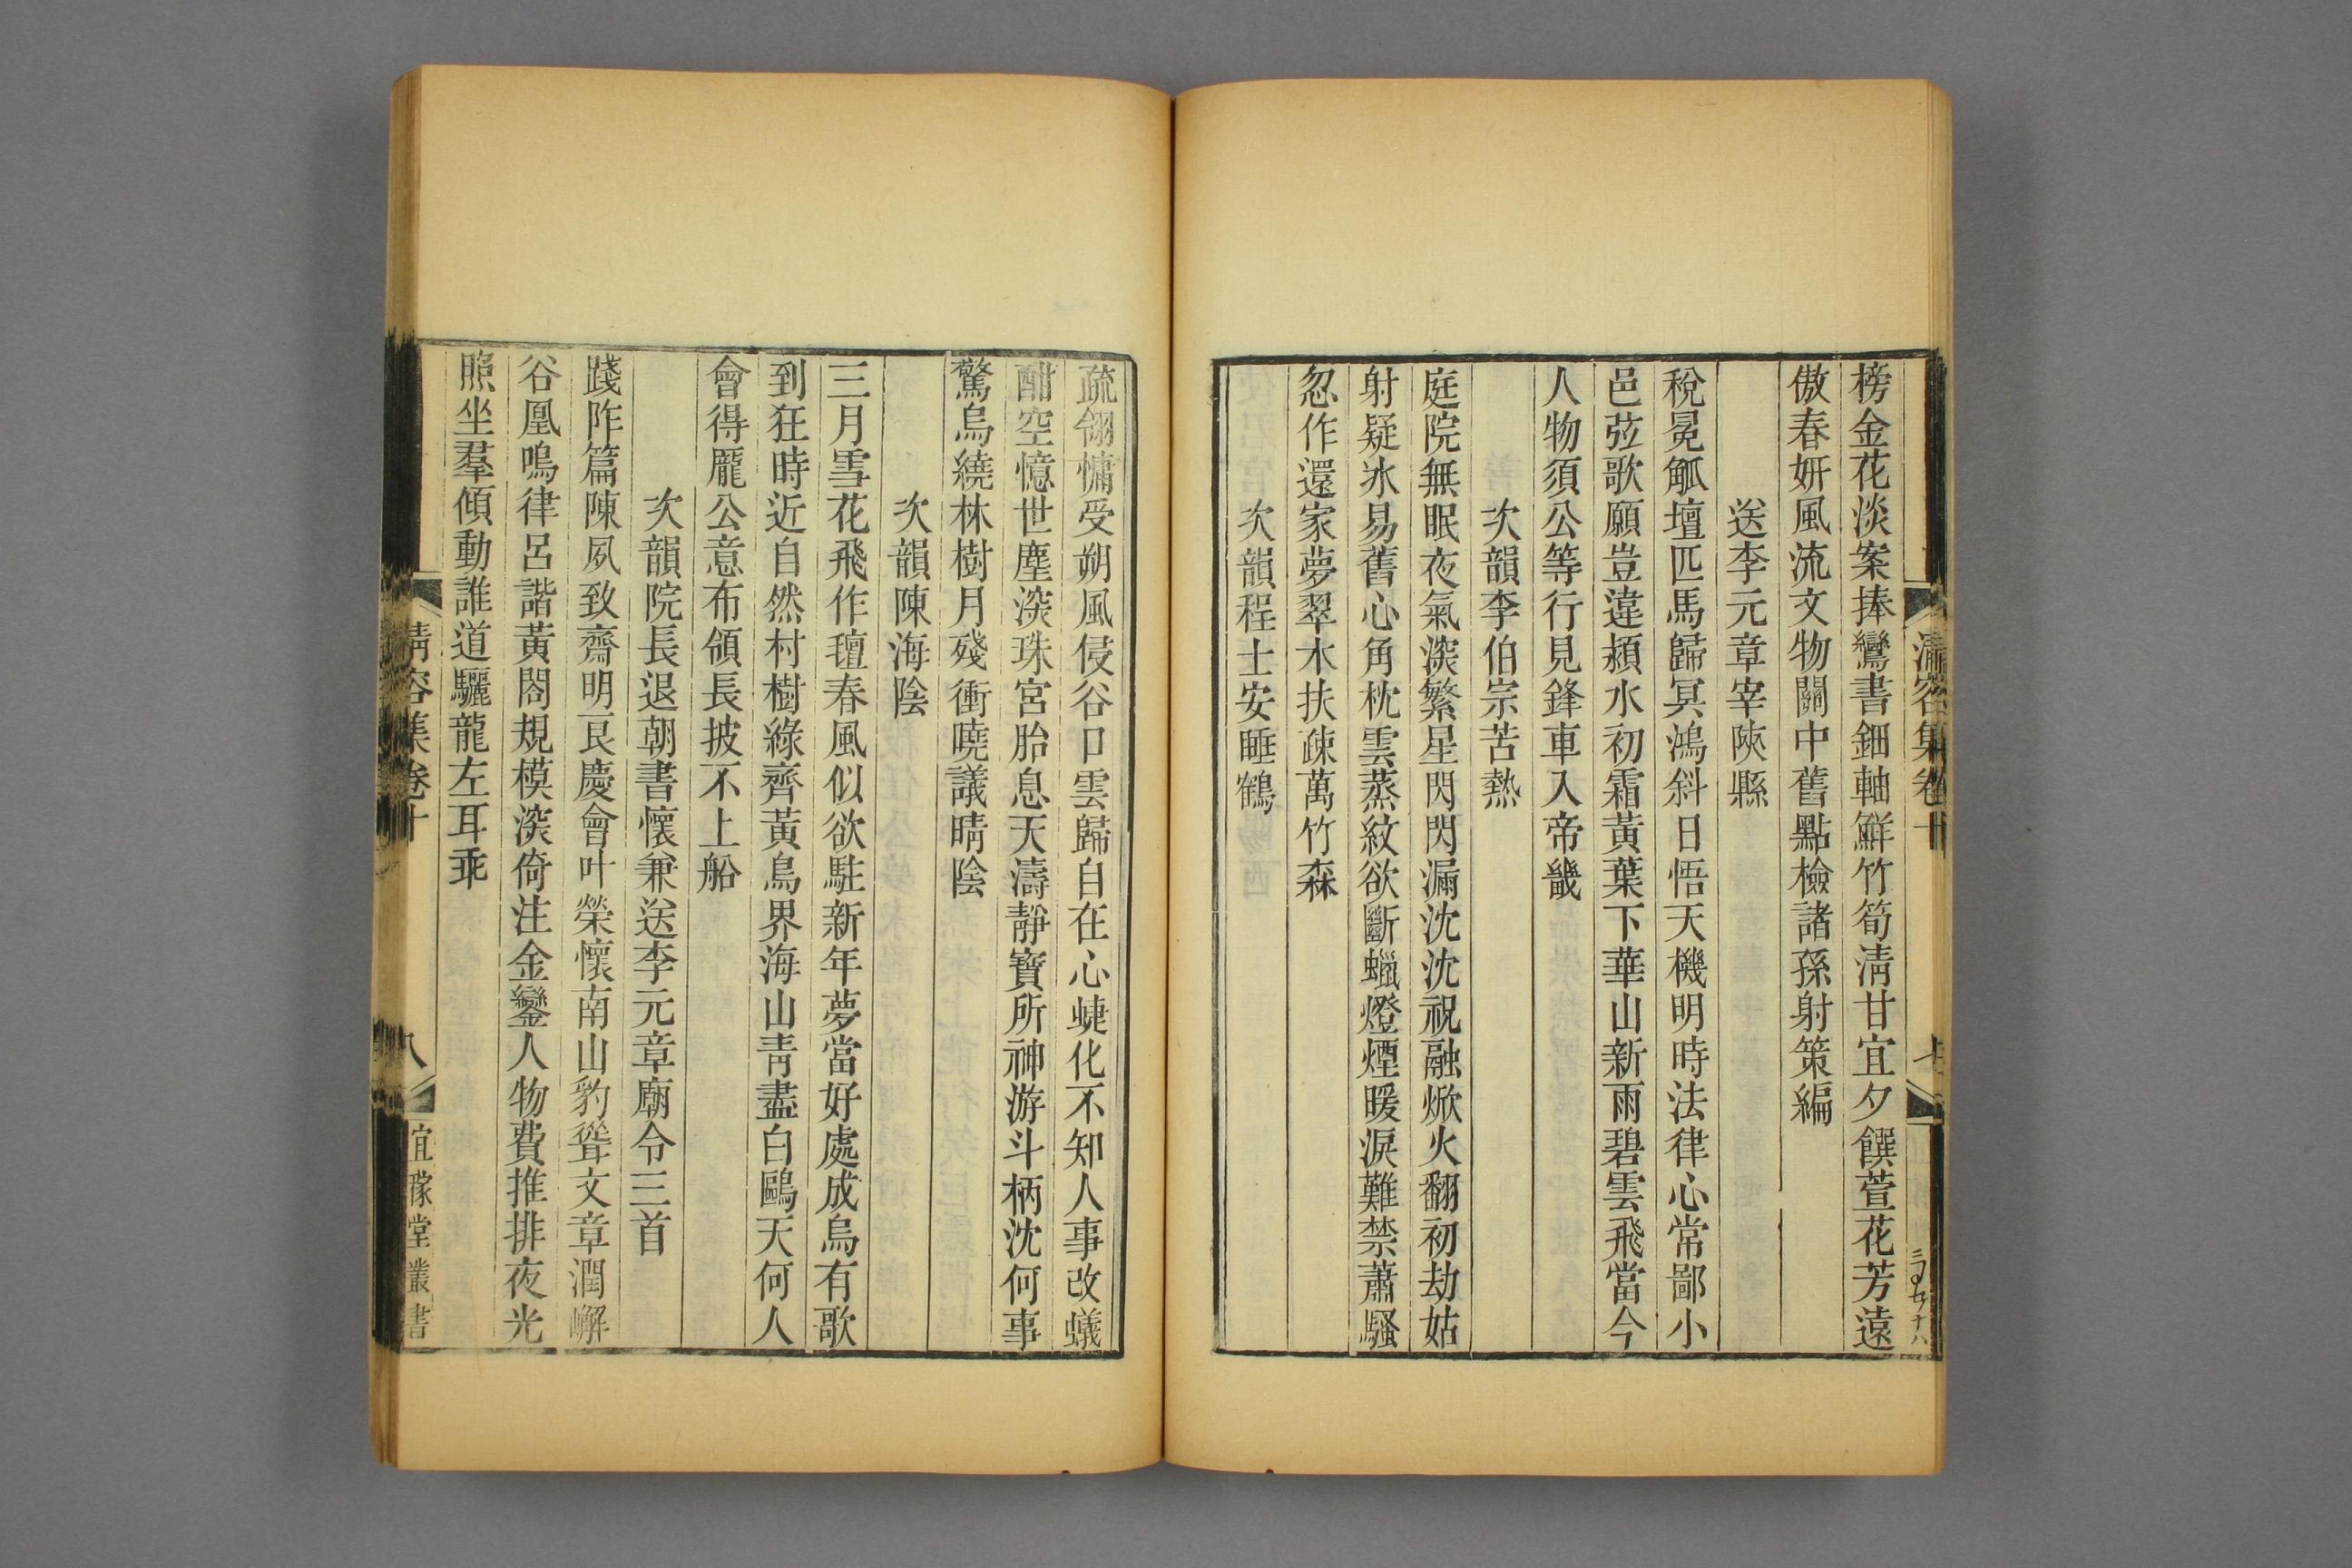 榜金花淡案捧鸞書鈿軸鮮竹筍淸甘宜夕饌萱花芳遠
傲春妍風流文物關中舊點檢諸孫射策編
送李元章宰陝縣
稅冕觚壇匹馬歸冥鴻斜日悟天機明時法律心常鄙小
邑弦歌願豈違潁水初霜黃葉下華山新雨碧雲飛當今
人物須公等行見鋒車入帝畿
次韻李伯宗苦熱
庭院無眠夜氣深繁星閃閃漏沈沈祝融焮火翻初劫姑
射疑冰易舊心角枕雲蒸紋欲斷蠟燈煙暖淚難禁蕭騷
忽作還家夢翠木扶疎萬竹森
次韻程士安睡鶴
疏翎慵受朔風侵谷口雲歸自在心蜨化不知人事改蟻
酣空憶世塵深珠宮胎息天濤靜寶所神游斗柄沈何事
驚烏繞林樹月殘衝曉議晴陰
次韻陳海陰
三月雪花飛作璮春風似欲駐新年夢當好處成烏有歌
到狂時近自然村樹綠齊黃鳥界海山靑盡白鷗天何人
會得龎公意布領長披不上船
次韻院長退朝書懷兼送李元章廟令三首
踐阼篇陳夙致齋明良慶會叶榮懷南山豹聳文章潤嶰
谷凰鳴律呂諧黃閤規模深倚注金鑾人物費推排夜光
照坐羣傾動誰道驪龍左耳乖
淸容集卷十
八
宜稼堂叢書